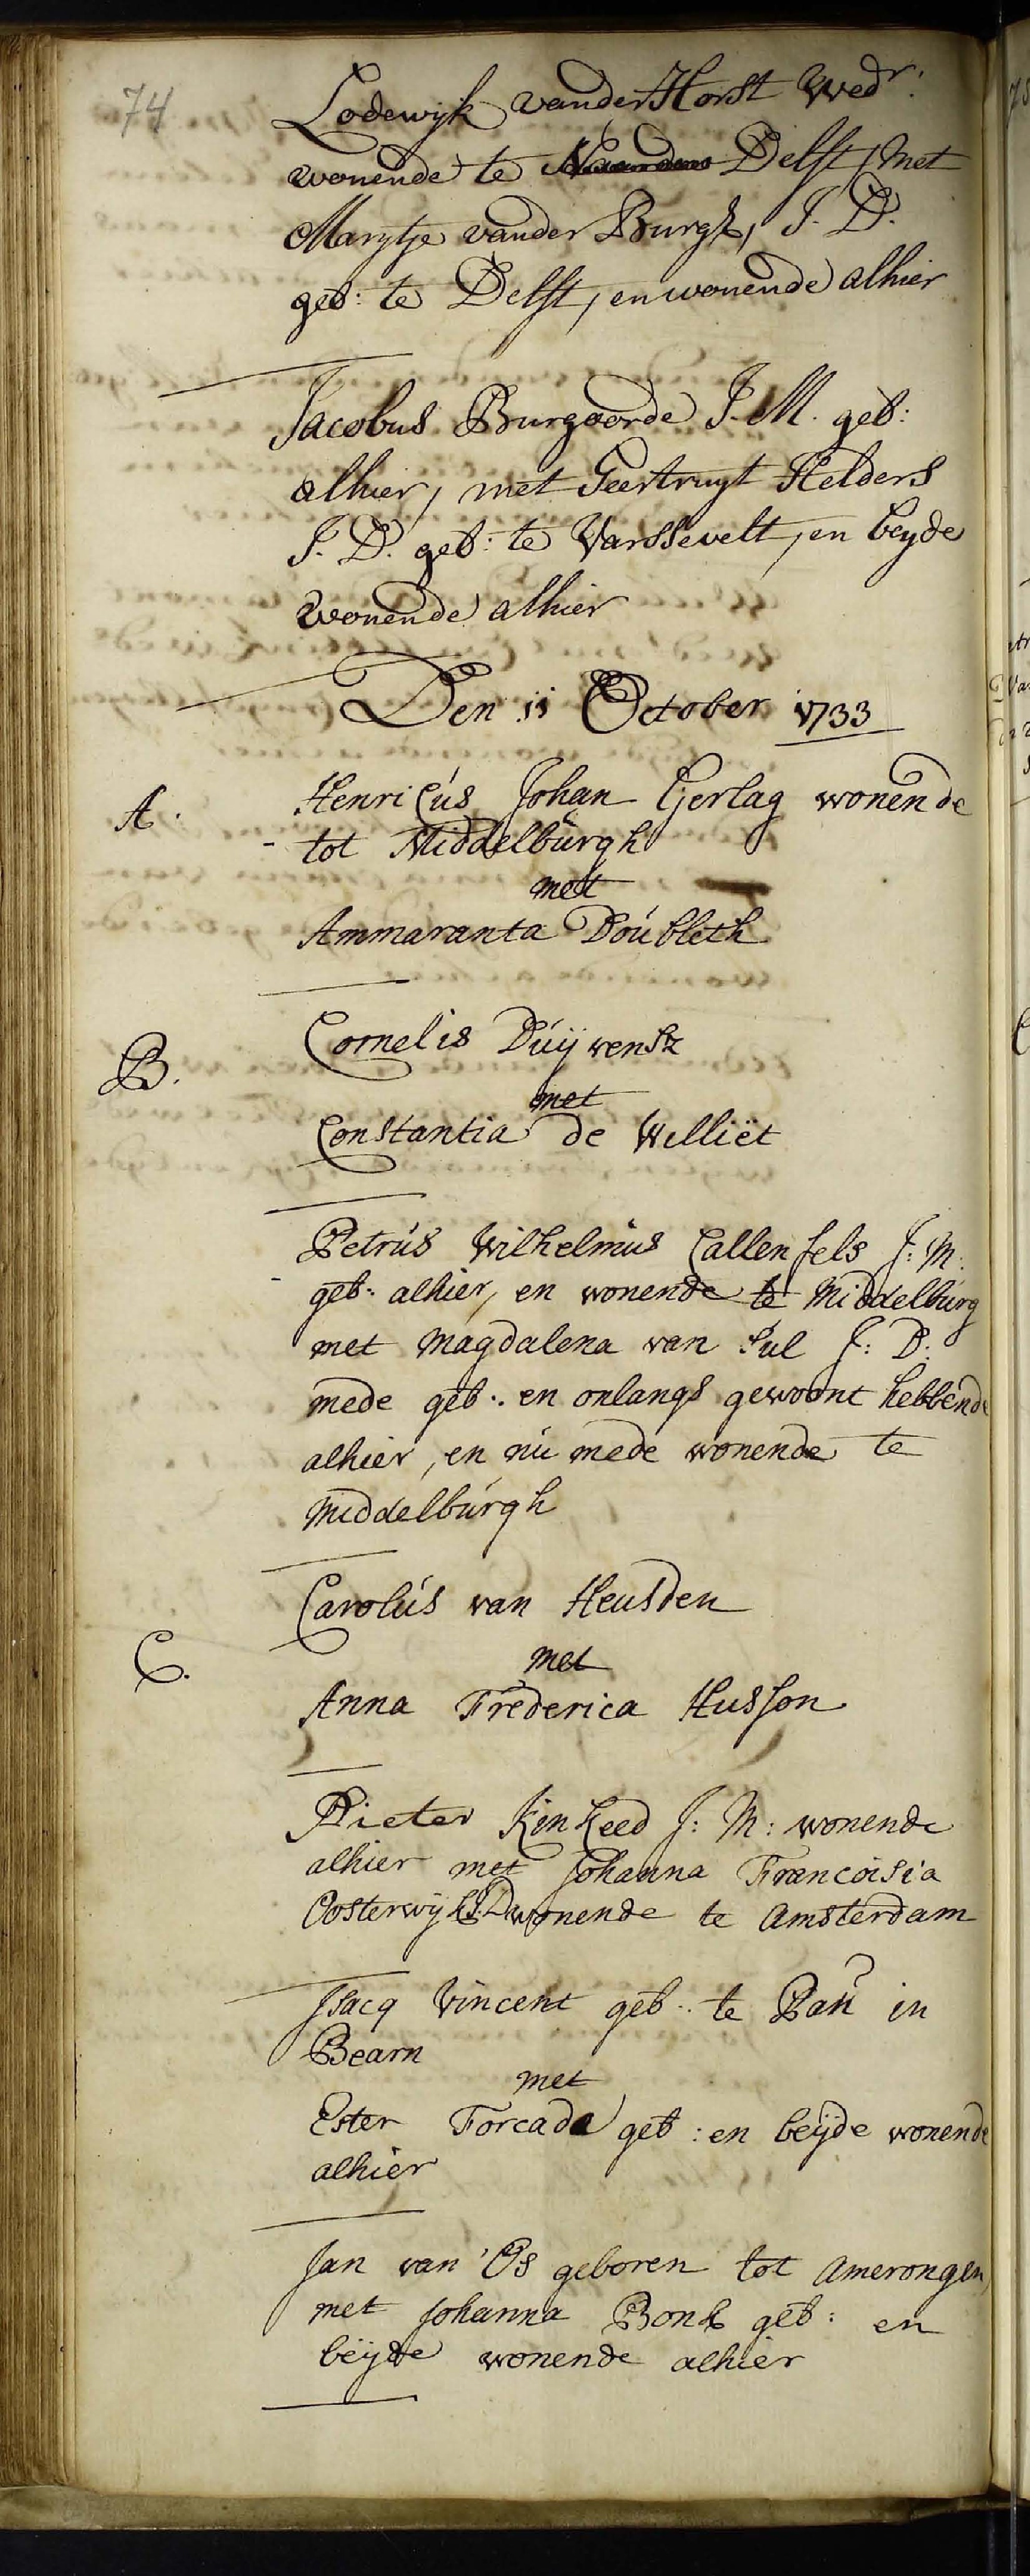 74
Lodewyk vander Horst Wedr.
wonende te Delft, met
Marytje vander Burgh, J. D.
geb: te Delft, en wonende alhier
Jacobus Burgoorde J. M. geb:
alhier, met Geertruyt Helders
J. D. geb: te Varssevelt, en beyde
wonende alhier
Den 11 October 1733
A. Henricus Johan Gerlag wonende
tot Middelburgh
met
Ammaranta Doubleth
B. Cornelis Duijvensz
met
Constantia de Williët
Petrus Wilhelmus Callenfels J: M:
geb: alhier, en wonende te Middelburg
met Magdalena van Sul J: D:
mede geb: en onlangs gewoont hebbende
alhier, en nu mede wonende te
Middelburgh
Carolus van Heusden
C. met
Anna Frederica Husson
Pieter Kinkeed J: M: wonende
alhier met Johanna Francoisia
Oosterwijk J.D wonende te Amsterdam
Isacq Vincent geb: te Pau in
Bearn
met
Ester Forcade geb: en beijde wonende
alhier
Jan van Os geboren tot Amerongen
met Johanna Bonk geb: en
beijde wonende alhier